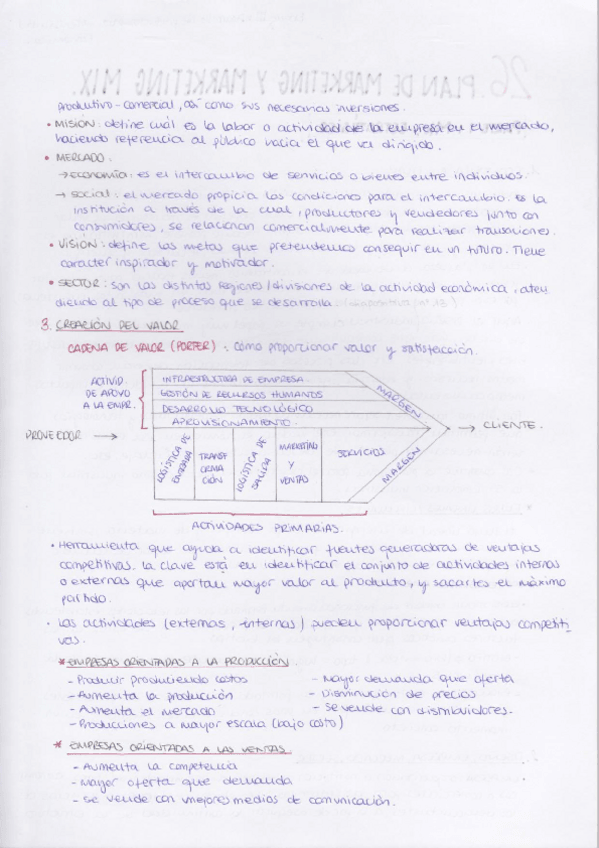 26. PLAN DE MARKETING Y MARKETING MIX.
productivo-comercial, así como sus necesarias inversiones.
• MISIÓN: define cuál es la labor o actividad de la empresa en el mercado,
haciendo referencia al público hacia el que va dirigido.
• MERCADO:
→ economía: es el intercambio de servicios o bienes entre individuos.
→ social: el mercado propicia las condiciones para el intercambio. es la
institución a través de la cual, productores y vendedores junto con
consumidores, se relacionan comercialmente para realizar transiciones.
• VISIÓN: define las metas que pretendemos conseguir en un futuro. Tiene
carácter inspirador y motivador.
• SECTOR: son las distintas regiones/divisiones de la actividad económica, aten
diendo al tipo de proceso que se desarrolla.
3. CREACIÓN DEL VALOR
CADENA DE VALOR (PORTER): cómo proporcionar valor y satisfacción.
ACTIVID.
DE APOYO
A LA EMPR.
INFRAESTRUCTURA DE EMPRESA
GESTIÓN DE RECURSOS HUMANOS
DESARROLLO TECNOLÓGICO
APROVISIONAMIENTO.
MARGEN
PROVEEDOR →
→ CLIENTE.
LOGÍSTICA DE
ENTRADA
TRANSF
ORMA
CIÓN
LOGÍSTICA DE
SALIDA
MARKETING
Y
VENTAS
SERVICIOS
MARGEN
ACTIVIDADES PRIMARIAS.
• Herramienta que ayuda a identificar fuentes generadoras de ventajas
competitivas. la clave está en identificar el conjunto de actividades internas
o externas que aportan mayor valor al producto, y sacarles el máximo
partido.
• Las actividades (externas, internas) pueden proporcionar ventajas competiti
vas.
* EMPRESAS ORIENTADAS A LA PRODUCCIÓN.
- Producir produciendo costos
- Aumenta la producción
- Aumenta el mercado
- Producciones a mayor escala (bajo costo)
- Mayor demanda que oferta
- Disminución de precios
- Se vende con distribuidores.
* EMPRESAS ORIENTADAS A LAS VENTAS
- Aumenta la competencia
- Mayor oferta que demanda
- Se vende con mejores medios de comunicación.